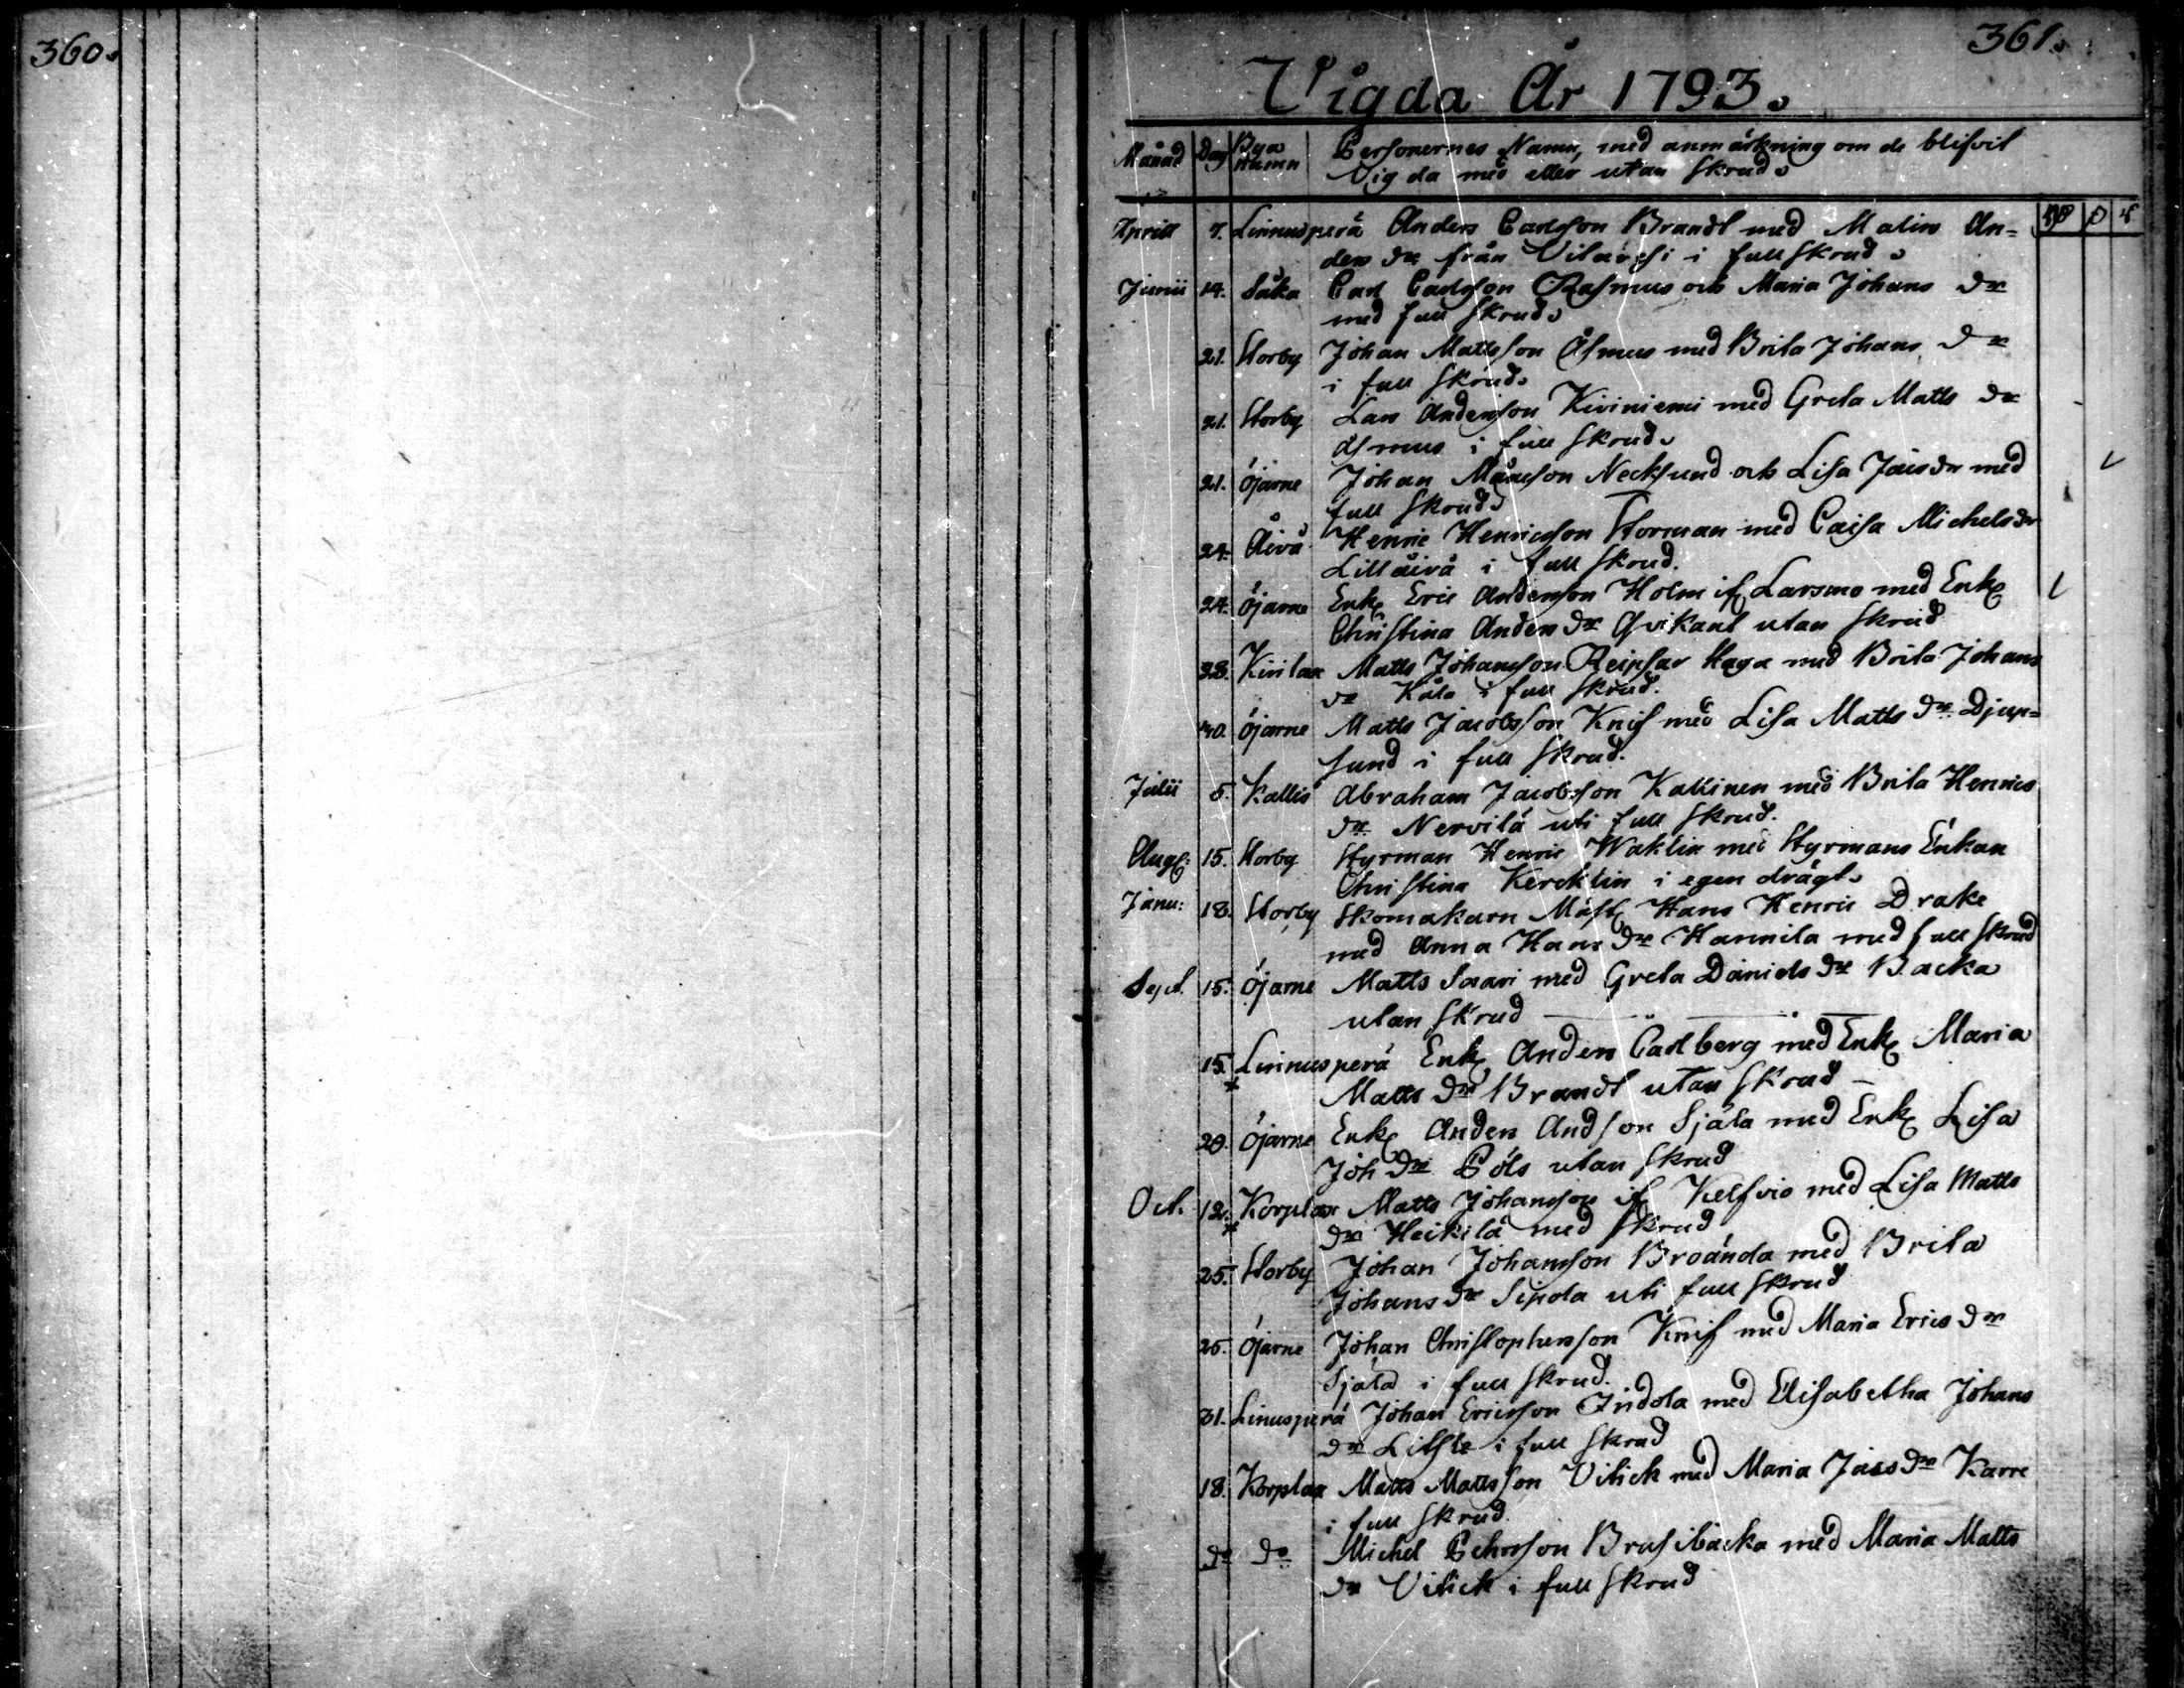 360.
361.
Vigda År 1793.
Månad Dag Bya Namn Personernes Namn, med anmärkning om de blifvit
Vigda med eller utan skrud.
Aprill 7. Linnusperä Anders Carlsson Brandt med Malin An=
ders dr från i full skrud.
Junii 14. Såka Carl Carlsson Rasmus och Maria Johans dr
med full skrud.
21. Storby Johan Mattsson Åsmus med Brita Johans dr
i full skrud.
21. Storby Lars Andersson Kiviniemi med Greta Matts dr
åsmus i full skrud.
21. Öjarne Johan Månsson Necksund och Lisa dr med
full skrud.
24. Åivå Henric Henricsson Storman med Caisa Michels dr
Lillåivå i full skrud.
24. Öjarne Enk. Eric Andersson Holm if. Larsmo med Enk.
Christina Anders dr Qvikant utan skrud
28. Kivilax Matts Johansson Reipsar Haga med Brita Johans
dr Kåla i full skrud.
30. Öjarne Matts Jacobsson Knif med Lisa Matts dr Djup=
sund i full skrud.
Julii 5. Kallis Abraham Jacobsson Kallinen med Brita Henrics
dr Nervilä uti full skrud.
Aug: 15. Storby Styrman Henric Waklin med Styrmans Enkan
Christina Kercklin i egen drägt.
Janu: 18. Storby Skomakarn Mäst. Hans Henric Drake
med Anna Hans dr Hannila med full skrud
Sept. 15. Öjarne Matts Saari med Greta Daniels dr Backa
utan skrud
15. Linnusperä Enk. Anders Carlberg med Enk. Maria
Matts dr Brandt utan skrud
29. Öjarne Enk. Anders Andsson Själa med Enk. Lisa
Joh dr Pöls utan skrud
Oct. 12. Korplax Matts Johansson if. Kelfvio med Lisa Matts
dr Heikilä med skrud
25. Storby Johan Johansson Broända med Brita
Johans dr Sipola uti full skrud
25. Öjarne Johan Christophersson Knif med Maria Erics dr
Själa i full skrud.
31. Linusperä Johan Ericsson Indola med Elisabetha Johans
dr i full skrud
18. Korplax Matts Mattsson Vitick med Maria dr Karre
i full skrud.
do do Michel Pehrsson Brasibacka med Maria Matts
dr Vitick i full skrud